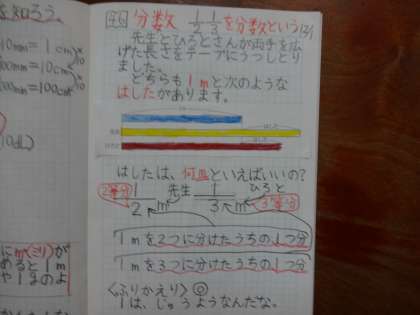 をしろう。
10mm = 1cm
100mm = 10cm
1000mm = 100cm
10dL)
にm(ミリ)が
あると1m
や1mのよ
46 分数 1/2 1/3を分数という 12/1
先生とひろとさんが両手を広
げた長さをテープにうつしとり
ました。
どちらも1mと次のような
はしたがあります。
はしたは、何mといえばいいの?
2等分 1/2 m 先生 1/3 m ひろと 3等分
1mを2つに分けたうちの1つ分
1mを3つに分けたうちの1つ分
<ふりかえり> ◎
1は、じゅうようなんだな。